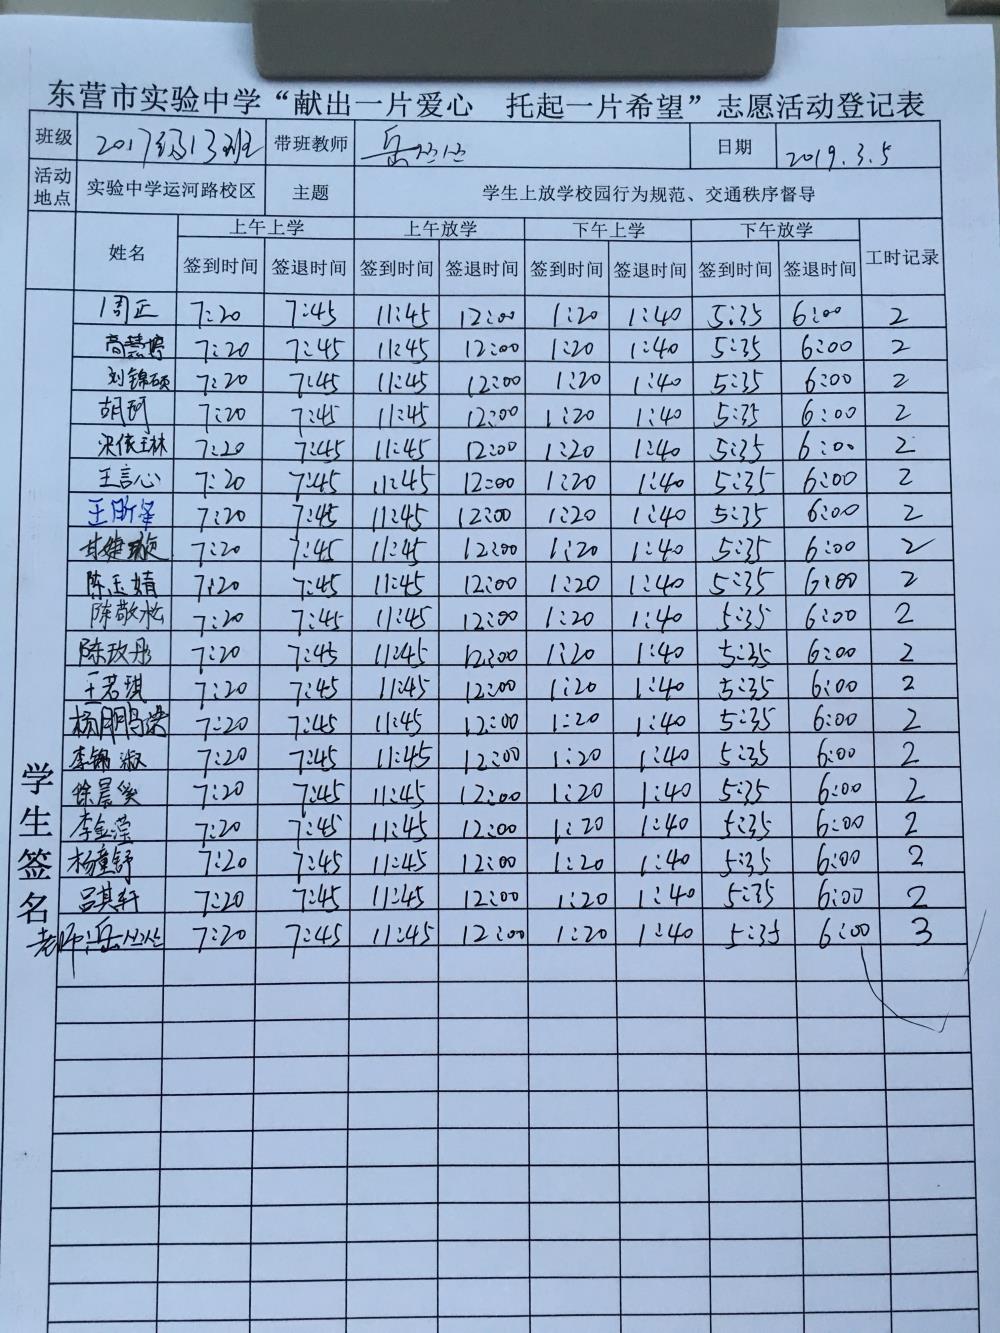 东营市实验中学“献出一片爱心 托起一片希望”志愿活动登记表
班级 2017级13班 带班教师 岳 日期 2019.3.5
活动地点 实验中学运河路校区 主题 学生上放学校园行为规范、交通秩序督导
姓名 上午上学 上午放学 下午上学 下午放学 工时记录
签到时间 签退时间 签到时间 签退时间 签到时间 签退时间 签到时间 签退时间
学生签名
周正 7:20 7:45 11:45 12:00 1:20 1:40 5:35 6:00 2
高慧婷 7:20 7:45 11:45 12:00 1:20 1:40 5:35 6:00 2
刘锦硕 7:20 7:45 11:45 12:00 1:20 1:40 5:35 6:00 2
胡珂 7:20 7:45 11:45 12:00 1:20 1:40 5:35 6:00 2
7:20 7:45 11:45 12:00 1:20 1:40 5:35 6:00 2
王言心 7:20 7:45 11:45 12:00 1:20 1:40 5:35 6:00 2
王 7:20 7:45 11:45 12:00 1:20 1:40 5:35 6:00 2
7:20 7:45 11:45 12:00 1:20 1:40 5:35 6:00 2
陈玉婧 7:20 7:45 11:45 12:00 1:20 1:40 5:35 6:00 2
陈敬松 7:20 7:45 11:45 12:00 1:20 1:40 5:35 6:00 2
陈玫彤 7:20 7:45 11:45 12:00 1:20 1:40 5:35 6:00 2
王若琪 7:20 7:45 11:45 12:00 1:20 1:40 5:35 6:00 2
杨 7:20 7:45 11:45 12:00 1:20 1:40 5:35 6:00 2
李锦淑 7:20 7:45 11:45 12:00 1:20 1:40 5:35 6:00 2
徐晨笑 7:20 7:45 11:45 12:00 1:20 1:40 5:35 6:00 2
李金滢 7:20 7:45 11:45 12:00 1:20 1:40 5:35 6:00 2
杨童舒 7:20 7:45 11:45 12:00 1:20 1:40 5:35 6:00 2
吕其轩 7:20 7:45 11:45 12:00 1:20 1:40 5:35 6:00 2
老师:岳 7:20 7:45 11:45 12:00 1:20 1:40 5:35 6:00 3